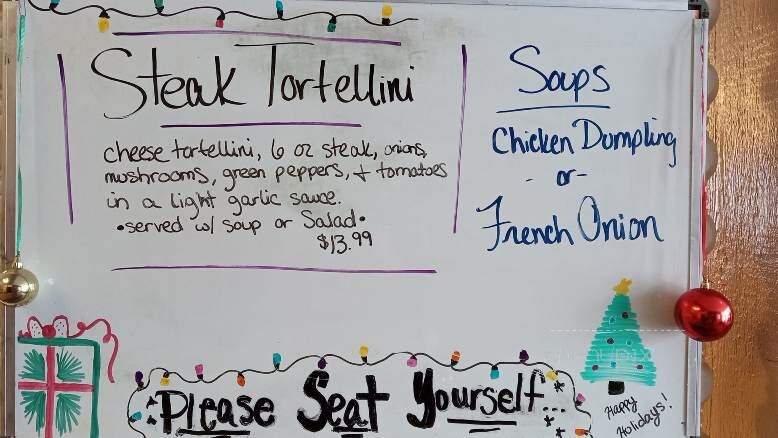 Steak Tortellini
cheese tortellini, 6 oz steak, onions,
mushrooms, green peppers, + tomatoes
in a light garlic sauce.
•served w/ soup or Salad•
$13.99
Soups
Chicken Dumpling
-or-
French Onion
Please Seat Yourself...
Happy
Holidays!